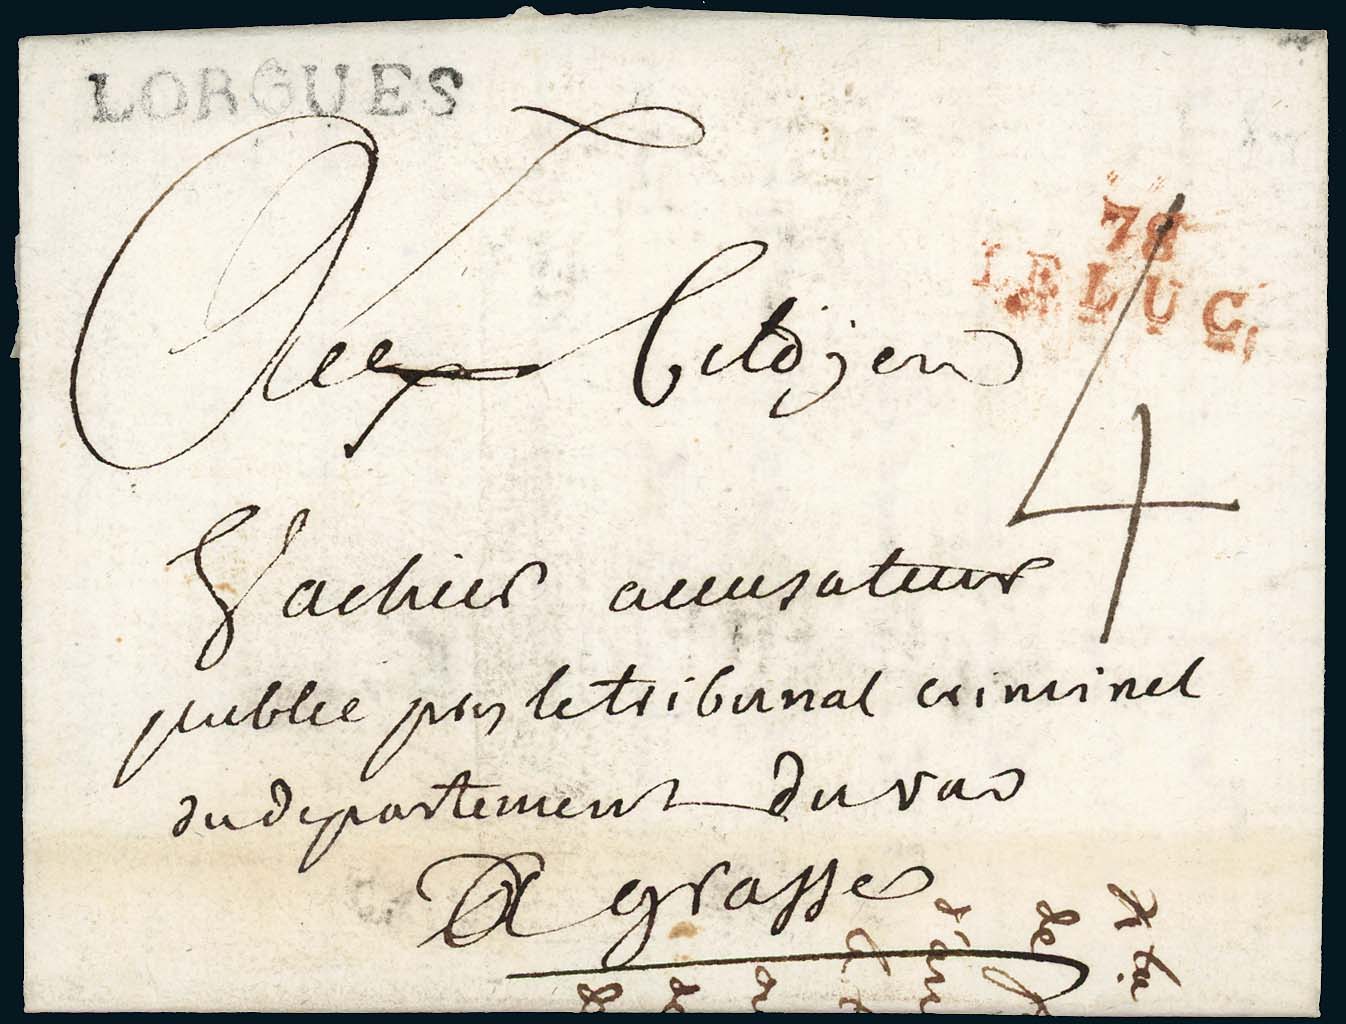 LORGUES
78
LE LUC
4
Au Citoyen
Vachier accusateur
publee pres le tribunal criminel
du departement du var
A grasse